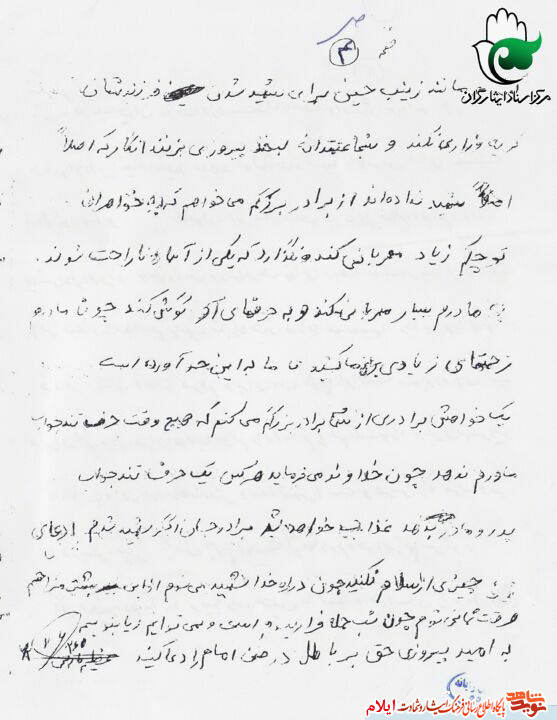 صفحه ۴
مرکز اسناد ایثارگران
مانند زینب حسین برای شهید شدن فرزندشان
گریه و زاری نکند و شجاعتمندانه لبخند پیروزی بزنند انگار که اصلاً
شهید نداده‌اند از برادر بزرگم می‌خواهم که به خواهران
کوچکم زیاد مهربانی کند و نگذارد که یکی از آنها ناراحت شوند.
به مادرم بسیار مهربانی کند و به حرفهای او گوش کند چون مادرم
زحمتهای زیادی برای ما کشید تا ما را به این حد آورده است
یک خواهش برادری از شما برادر بزرگم می‌کنم که هیچ وقت حرف تند جواب
مادرم ندهد چون خداوند می‌فرماید هر کس یک حرف تند جواب
پدر و مادر بدهد عذاب خواهد شد برادر جان اگر شهید شدم ادعای
چیزی از اسلام نکنید چون در راه خدا شهید می‌شوم از این بیشتر مزاحم
وقت شما نمی‌شوم چون شب جمعه و است و نمی‌توانم زیاد بنویسم
به امید پیروزی حق بر باطل در ضمن امام را دعا کنید
نوید شاهد
پایگاه اطلاع رسانی فرهنگ ایثار و شهادت ایلام